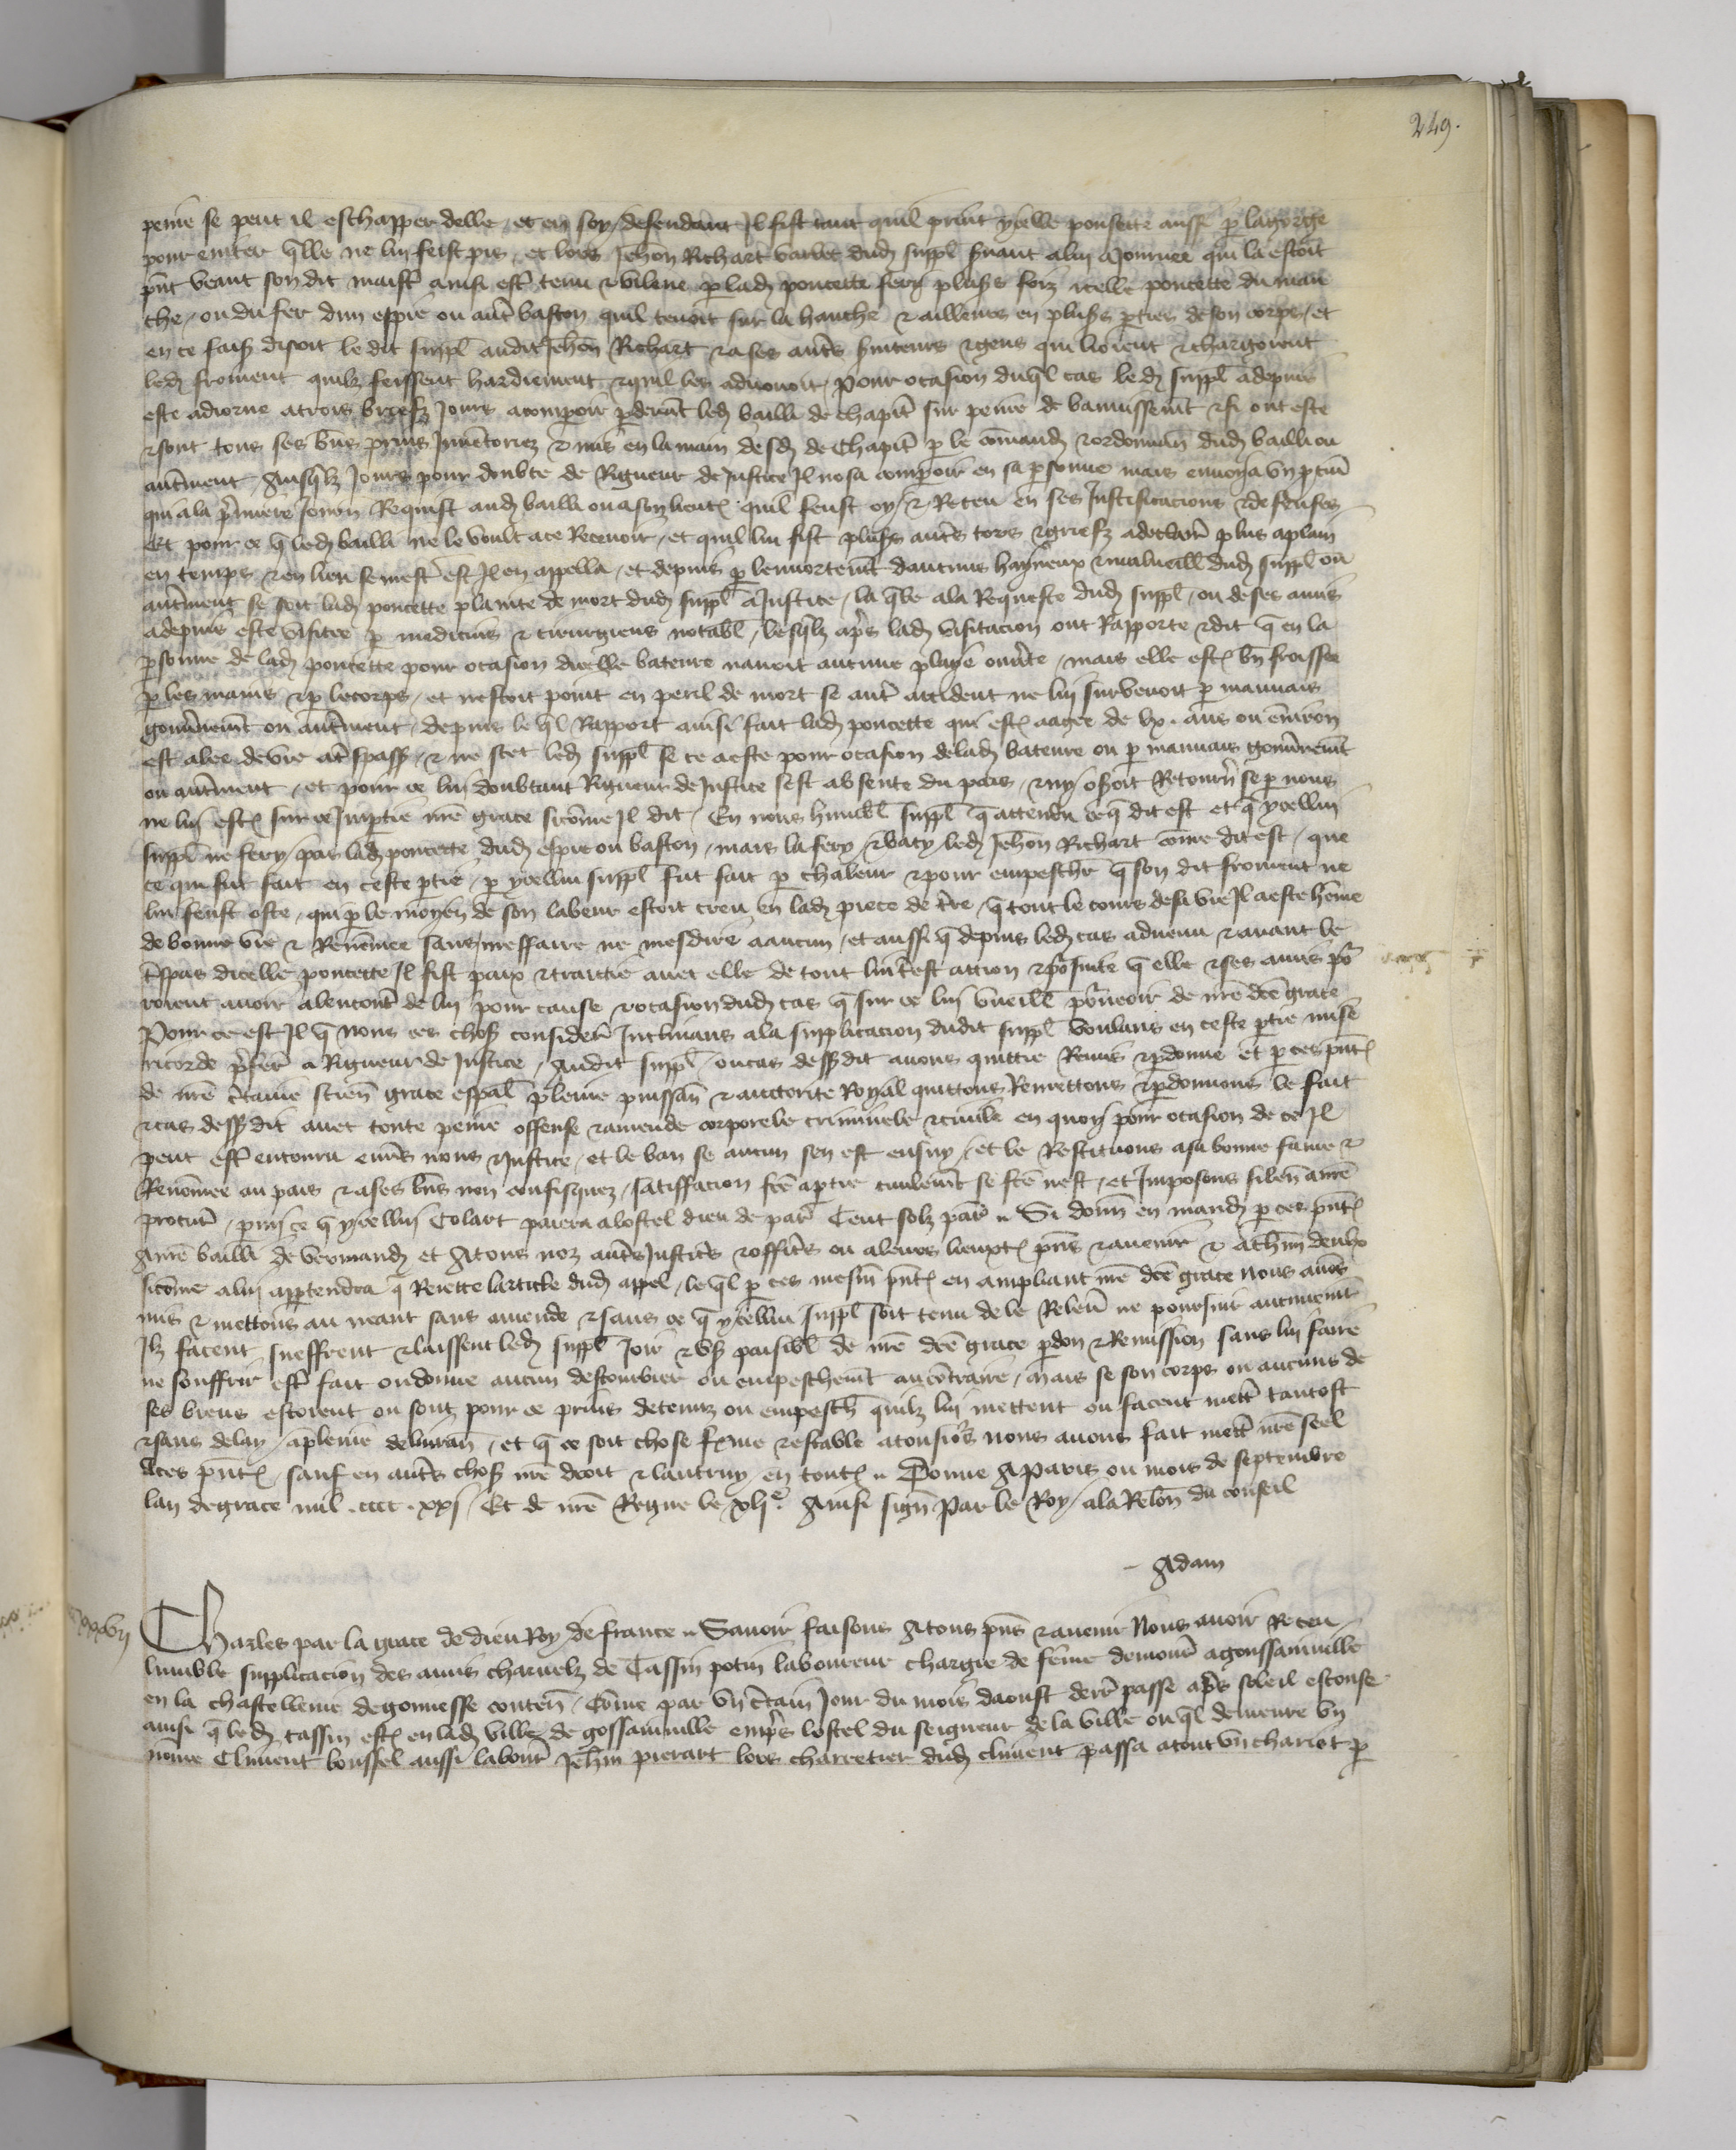 249.
peine se peut il eschapper delle / et en soy defendant Il fist tant quil print ycelle poncette aussi p lagorge
pour euiter q̄lle ne lui feist pis / et lors Jehan Richart varlet dud suppl seruant alui aJournee qui la estoit
pn̄t veant son dit maistr̄ ainsi estr̄ tenu & vilene p lad poncette fery pluss foiz icelle poncette du man
che / ou du fer dun espie ou aut̄ baston quil tenoit sur la hanche & ailleurs en pluss pties de son corps / et
en ce fais disoit le dit suppl audit Jehan Richart & ases aut̄s suiteurs & gens qui lioient & chargoient
led froment quilz feissent hardiement & quil les aduouoit / Pour ocasion duq̄l cas le d suppl adepuis
este adiorne atrois briefz Jours acomparoir pdeuāt led bailli de chapit̄ sur peine de bannissemt̄ & si ont este
& sont tous ses bn̄s prins Inuentoriez & mis en la main desd de Chapit̄ p le cōmand & ordonnan̄ dud bailli ou
aut̄ment / Ausq̄lz Jours pour doubte de Rigueur de Justice Il nosa comparoir en sa psonne mais enuoya vn ptin̄
qui ala p̄miere Jornn̄ Requist aud bailli ou a son lieut̄ quil feust oy & Receu en ses Justificacions & defenses /
Et pour ce q̄ led bailli ne le voult ace Receuoir / et quil lui fist pluss aut̄s tors & griefz adeclair̄ plus aplain
en temps & en lieu se mestr̄ est Il en appella / et depuis p lennortemt̄ daucuns hayneux & malueill dud suppl ou
aut̄ment se soit lad poncette plainte de mort dud suppl a Justice / la q̄le ala Requeste dud suppl / ou de ses amis
adepuis este visitee p medicins & cirurgiens notabl / lesq̄lz ap̄s lad visitacion ont Rapporte & dit q̄ en la
psonne de lad poncette pour ocasion dicelle bateure nauoit aucune playe ouūte / mais elle est bn̄ froissee
p les mains & p lecorps / et nestoit point en peril de mort se aut̄ accident ne lui suruenoit p mauuais
gouunemt̄ ou aut̄ment / depuis le q̄l Rapport ainsi fait lad poncette qui est aagee de lx. ans ou enuiron
est alee de vie at̄spass / & ne scet led suppl se ce aeste pour ocasion de lad bateure ou p mauuais gouunemt̄
ou aut̄ment / et pour ce lui doubtant Rigueur de Justice sest absente du pais / & ny osoit Retourn̄ se p nous
ne lui est sur ce Impartie nr̄e grace sicōme Il dit / En nous humbl suppl q̄ attendu ceq̄ dit est et q̄ ycellui
suppl ne fery pas lad poncette dud espie ou baston / mais la fery & baty led Jehan Richart cōme dit est / que
ce qui fut fait en ceste ptie p ycellui suppl fut fait p chaleur & pour empeschr̄ q̄ son dit froment ne
lui feust oste / qui p le moyen de son labeur estoit creu en lad piece de tr̄e / q̄ tout le cours desa vie Il aeste hōme
de bonne vie & Renōmee sans meffaire ne mesdire aaucun / et aussi q̄ depuis led cas aduenu & auant le
t̄spas dicelle poncette Il fist paix & traictie auec elle de tout Intr̄est action & poursuite q̄ elle & ses amis po
roient auoir alencont̄ de lui pour cause & ocasion dud cas q̄ sur ce lui vueill pourueoir de nr̄e dc̄e grace
Pour ce est Il q̄ nous ces chos considere Inclinans ala supplicacion dudit suppl voulans en ceste ptie mise
ricorde p̄fer̄ a Rigueur de Justice / Audit suppl / ou cas dessusdit auons quictie Remis & pdonne et p ces pn̄t
de nr̄e c̄taine scien̄ grace espal pleine puissan̄ & auctorite Royal quictons Remettons & pdonnons le fait
& cas dessusdit auec toute peine offense & amende corporele criminele & ciuile en quoy pour ocasion de ce Il
peut estr̄ encouru enūs nous & Justice / et le ban se aucun sen est ensuy / et le Restituons asa bonne fame &
Renōmee au pais & ases bn̄s non confisquez / satiffacion fc̄e aptie ciuilemt̄ se fc̄e nest / et Imposons silen̄ anr̄e
procur̄ / pmi ce q̄ ycellui Colart paiera aloftel dieu de par̄ Cent solz par̄ Si donn̄ en mand p ces pn̄t
Anr̄e bailli de vermand et Atous noz aut̄s Justic̄s & offic̄s ou aleurs lieuxt pn̄s & auenir & achūn deulx
sicōme alui appartendra q̄ Reiette larticle dud appel / leq̄l p ces mesm̄ pn̄t en ampliant nr̄e dc̄e grace nous auōs
mis & mettons au neant sans amende & sans ce q̄ ycellui suppl soit tenu de le Releū ne poursuir aucunemt̄
Ilz facent sueffrent & laissent led suppl Joir & us paisibl de nr̄e dc̄e grace pdon & Remission sans lui faire
ne souffrir estr̄ fait ou donne aucun destourbier ou empeschemt̄ aucōtraire / mais se son corps ou aucuns de
ses biens estoient ou sont pour ce prins detenuz ou empesch quilz lui mettent ou facent mettr̄ tantost
& sans delay / apleine deliuran̄ / et q̄ ce soit chose ferme & estable atousio's nous auons fait mettr̄ nr̄e seel
Aces pn̄t / sauf en aut̄s chos nr̄e droit & lautruy en tout Donne Aparis ou mois de septembre
lan degrace mil .cccc. xxj / Et de nr̄e Regne le xlje. Ainsi sign̄ Par le Roy / ala Relon̄ du conseil
Adam
Charles par la grace de dieu Roy de france Sauoir faisons Atous pn̄s & auenir Nous auoir Receu
lumble supplicacion des amis charnelz de Tassin potin laboureur chargie de fēme demour̄ agoussainuille
en la chastellenie degonnesse conten̄ / Cōme par vn c̄tain Jour du mois daoust derr̄ passe ap̄s soleil esconse
ainsi q̄ led tassin est en lad ville de gossainuille emp̄s lostel du seigneur de la ville ouq̄l demeure vn
nōme Climent boussel aussi labour̄ Jehan pierart lors charretier dud climent passa atout vn chariot p